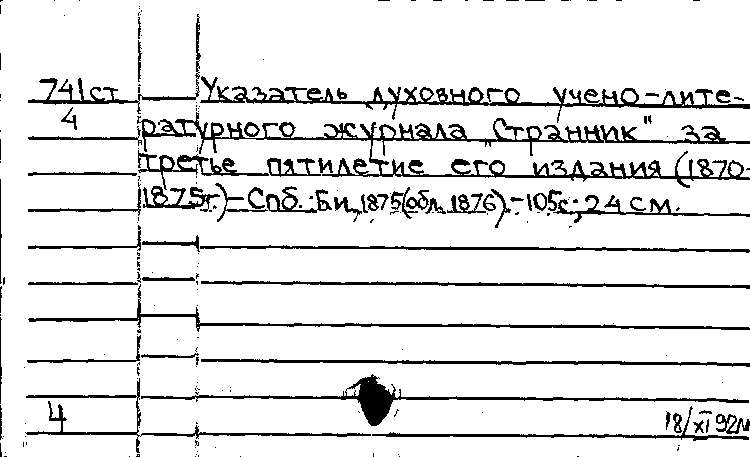 741ст Указатель духовного учено-лите-
4
ратурного журнала „Странник" за
третье пятилетие его издания (1870-
1875г.)-Спб.:Би, 1875(обл. 1876).-105с; 24 см.
4
18/XI 92